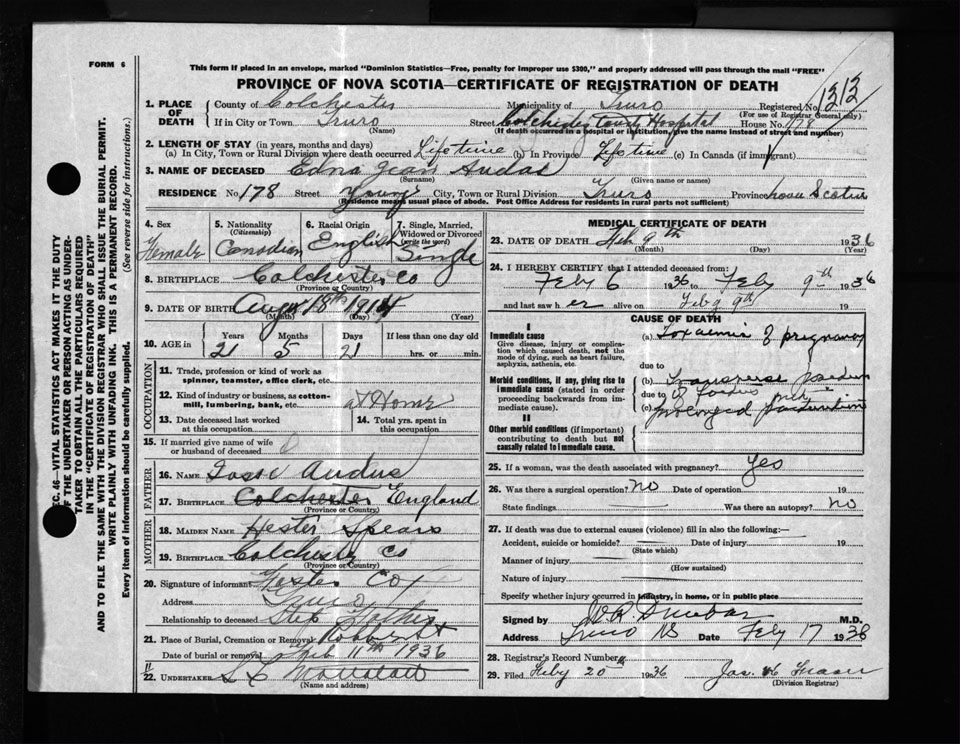 FORM 6
This form if placed in an envelope, marked "Dominion Statistics—Free, penalty for improper use $300," and properly addressed will pass through the mail "FREE"
PROVINCE OF NOVA SCOTIA—CERTIFICATE OF REGISTRATION OF DEATH
1. PLACE OF DEATH
County of Colchester Municipality of Truro Registered No. 1313
(For use of Registrar General only)
If in City or Town Truro Street Colchester County Hospital House No. 178
(Name) (If death occurred in a hospital or institution, give the name instead of street and number)
2. LENGTH OF STAY (in years, months and days)
(a) In City, Town or Rural Division where death occurred Lifetime (b) In Province Lifetime (c) In Canada (if immigrant)
3. NAME OF DECEASED Edna Jean Audas
(Surname) (Given name or names)
RESIDENCE No. 178 Street Young City, Town or Rural Division Truro Province Nova Scotia
(Residence means usual place of abode. Post Office Address for residents in rural parts not sufficient)
4. Sex Female
5. Nationality (Citizenship) Canadian
6. Racial Origin English
7. Single, Married, Widowed or Divorced (write the word) Single
8. BIRTHPLACE Colchester Co
(Province or Country)
9. DATE OF BIRTH Aug 18th 1914
(Month) (Day) (Year)
10. AGE in Years 21 Months 5 Days 21 If less than one day old
hrs. or min.
OCCUPATION
11. Trade, profession or kind of work as spinner, teamster, office clerk, etc.
12. Kind of industry or business, as cotton-mill, lumbering, bank, etc. at Home
13. Date deceased last worked at this occupation
14. Total yrs. spent in this occupation
15. If married give name of wife or husband of deceased
FATHER
16. NAME Audas
17. BIRTHPLACE Colchester England
(Province or Country)
MOTHER
18. MAIDEN NAME Hester Spears
19. BIRTHPLACE Colchester Co
(Province or Country)
20. Signature of informant Cox
Address Truro
Relationship to deceased Step Father
21. Place of Burial, Cremation or Removal
Date of burial or removal Feb 11th 1936
22. UNDERTAKER
(Name and address)
MEDICAL CERTIFICATE OF DEATH
23. DATE OF DEATH Feb 9th 1936
(Month) (Day) (Year)
24. I HEREBY CERTIFY that I attended deceased from:
Feby 6 1936 to Feby 9th 1936
and last saw her alive on Feby 9th
CAUSE OF DEATH
I
Immediate cause
Give disease, injury or complication which caused death, not the mode of dying, such as heart failure, asphyxia, asthenia, etc.
(a) Toxaemia of pregnancy
due to
Morbid conditions, if any, giving rise to immediate cause (stated in order proceeding backwards from immediate cause).
(b) Transverse
due to
(c) prolonged parturition
II
Other morbid conditions (if important) contributing to death but not causally related to immediate cause.
25. If a woman, was the death associated with pregnancy? Yes
26. Was there a surgical operation? No Date of operation 19
State findings Was there an autopsy? No
27. If death was due to external causes (violence) fill in also the following:—
Accident, suicide or homicide? Date of injury 19
(State which)
Manner of injury
(How sustained)
Nature of injury
Specify whether injury occurred in industry, in home, or in public place
Signed by W R Dunbar M.D.
Address Truro NS Date Feby 17 1936
28. Registrar's Record Number
29. Filed Feby 20th 1936
(Division Registrar)
SEC. 46—VITAL STATISTICS ACT MAKES IT THE DUTY
OF THE UNDERTAKER OR PERSON ACTING AS UNDERTAKER TO OBTAIN ALL THE PARTICULARS REQUIRED
IN THE "CERTIFICATE OF REGISTRATION OF DEATH"
AND TO FILE THE SAME WITH THE DIVISION REGISTRAR WHO SHALL ISSUE THE BURIAL PERMIT.
WRITE PLAINLY WITH UNFADING INK. THIS IS A PERMANENT RECORD.
Every item of information should be carefully supplied. (See reverse side for instructions.)